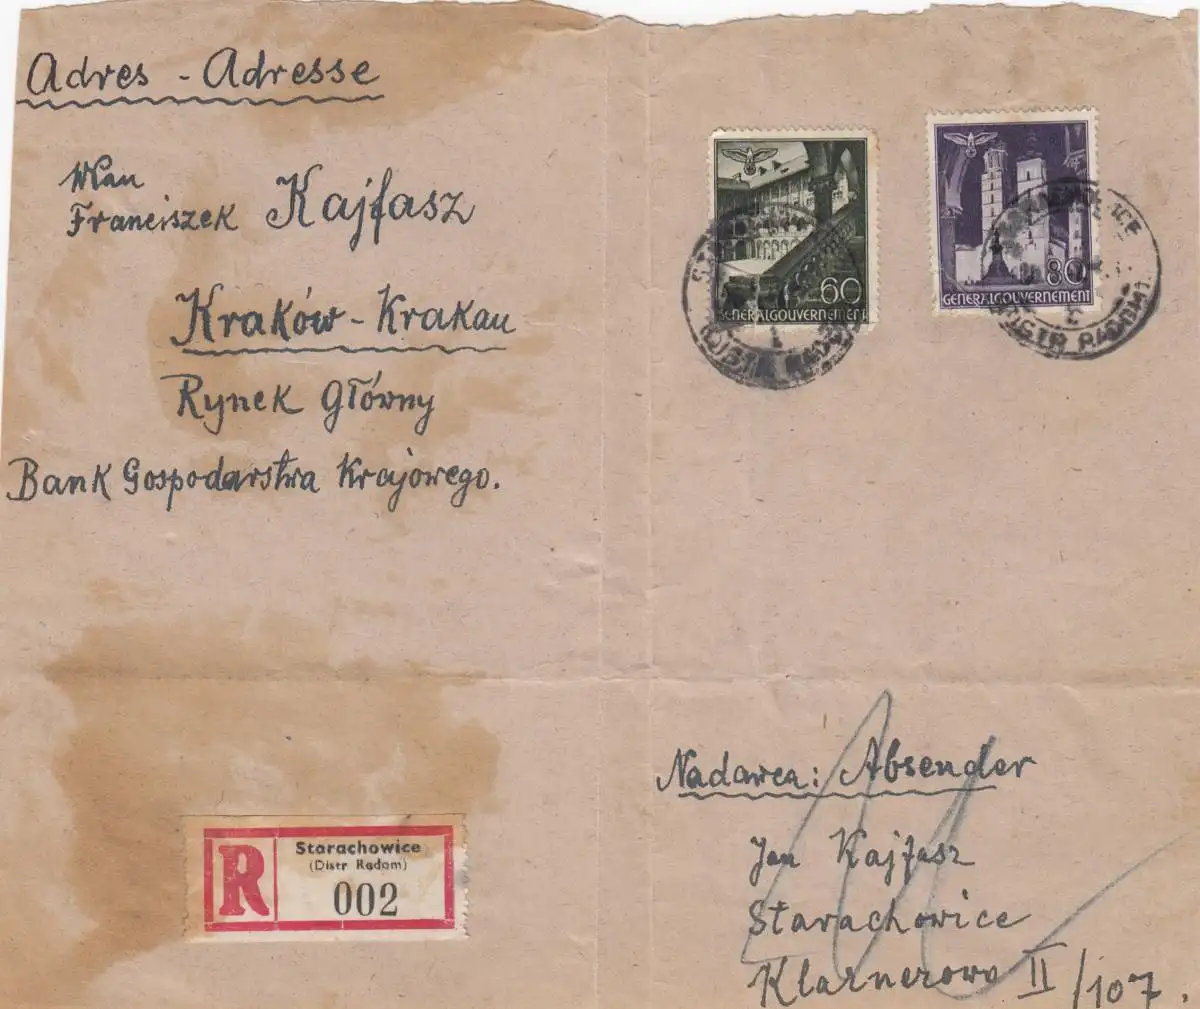 Adres - Adresse
WPan
Franciszek Kajfasz
Kraków - Krakau
Rynek Główny
Bank Gospodarstwa Krajowego.
60
GENERALGOUVERNEMENT
80
GENERALGOUVERNEMENT
(DISTR RADOM)
R
Starachowice
(Distr Radom)
002
Nadawca: Absender
Jan Kajfasz
Starachowice
Klarnerowo II/107.